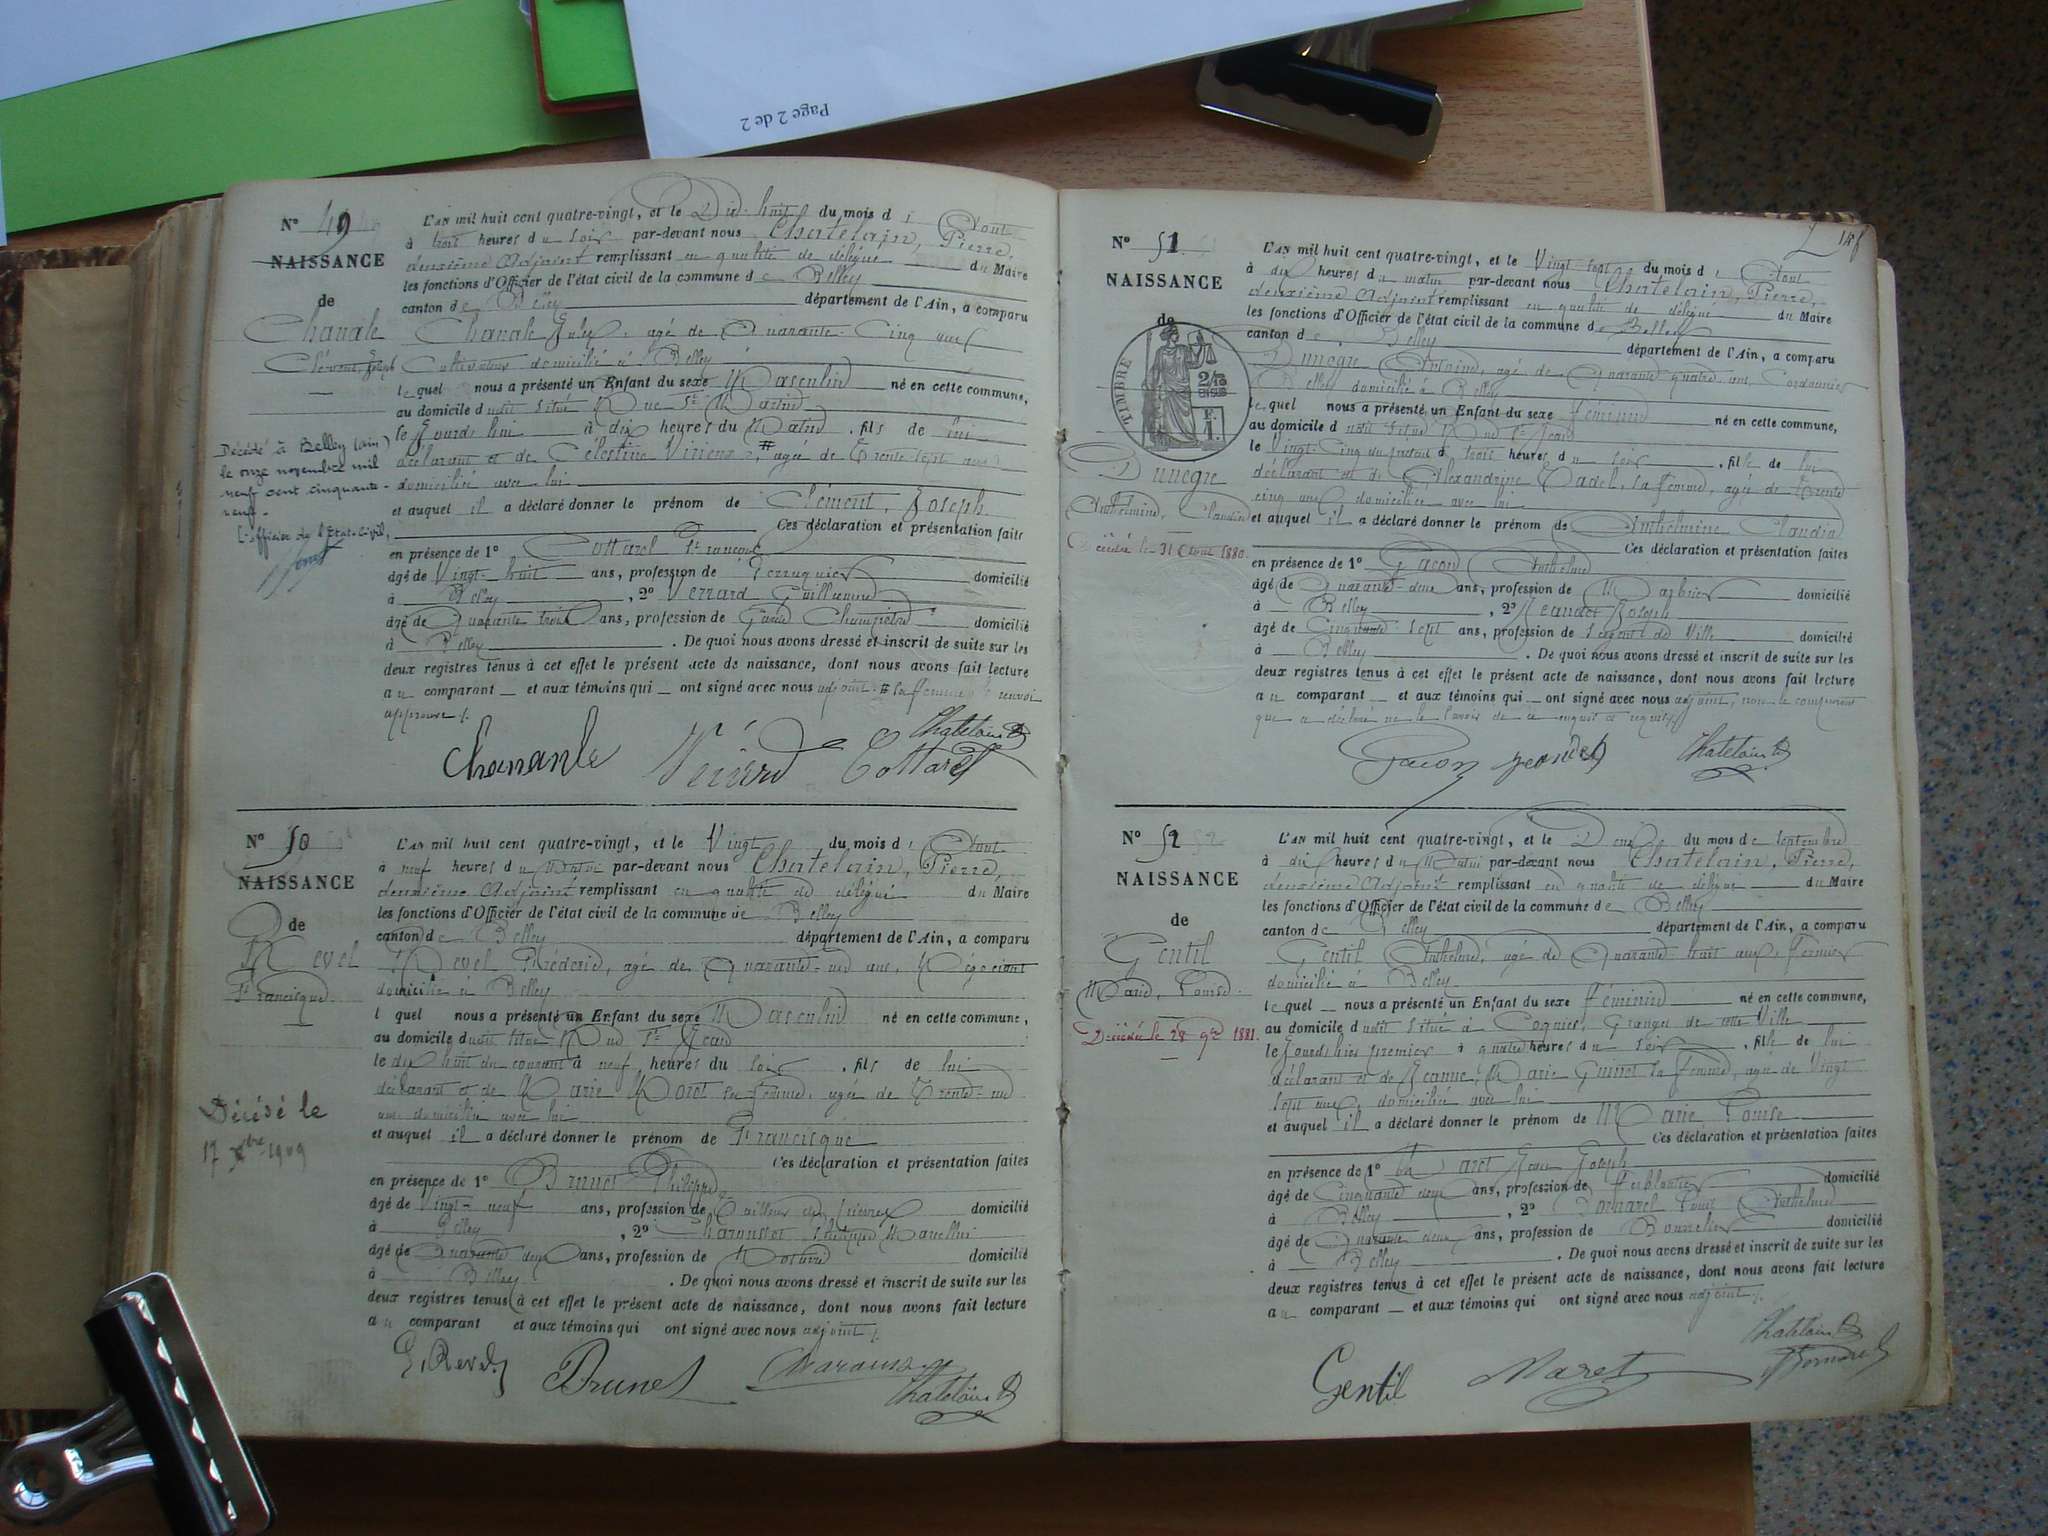 Page 2 de 2
N° 49
NAISSANCE
de
Chanale
Clément, Joseph
Décédé à Belley (ain)
le onze novembre mil
neuf cent cinquante-
neuf.
L'officier de l'Etat-Civil,
L'AN mil huit cent quatre-vingt, et le Dix-huit du mois d' Août
à trois heures du soir par-devant nous Chatelain, Pierre,
deuxième Adjoint remplissant en qualité de délégué du Maire
les fonctions d'Officier de l'état civil de la commune de Belley
canton de Belley département de l'Ain, a comparu
Chanale Jules, agé de Quarante-Cinq ans
Cultivateur domicilié à Belley
lequel nous a présenté un Enfant du sexe Masculin né en cette commune,
au domicile dudit situé Rue St Martin
le Jourd'hui à dix heures du Matin, fils de lui
déclarant et de Célestine # agée de Trente-sept ans
domiciliée avec lui
et auquel il a déclaré donner le prénom de Clément, Joseph
Ces déclaration et présentation faites
en présence de 1° Cottarel François
âgé de Vingt-huit ans, profession de Perruquier domicilié
à Belley, 2° Verrard Guillaume
âgé de Quarante trois ans, profession de Garde Champêtre domicilié
à Belley. De quoi nous avons dressé et inscrit de suite sur les
deux registres tenus à cet effet le présent acte de naissance, dont nous avons fait lecture
au comparant et aux témoins qui ont signé avec nous adjoint. # sa femme, le renvoi
approuvé /.
Chatelain
Chananle Cottarel
N° 50
NAISSANCE
de
Revel
Francisque
Décédé le
17 xbre 1909
L'AN mil huit cent quatre-vingt, et le Vingt du mois d' Août
à neuf heures du Matin par-devant nous Chatelain, Pierre,
deuxième Adjoint remplissant en qualité de délégué du Maire
les fonctions d'Officier de l'état civil de la commune de Belley
canton de Belley département de l'Ain, a comparu
Revel Frédéric, agé de Quarante-un ans, Négociant
domicilié à Belley
lequel nous a présenté un Enfant du sexe Masculin né en cette commune,
au domicile dudit situé Rue St Jean
le dix huit du courant à neuf heures du soir, fils de lui
déclarant et de Marie Moret sa femme, agée de Trente-un
ans domiciliée avec lui
et auquel il a déclaré donner le prénom de Francisque
Ces déclaration et présentation faites
en présence de 1° Brunet Philippe
âgé de Vingt-neuf ans, profession de Tailleur de pierres domicilié
à Belley, 2° Marcellin
âgé de Quarante deux ans, profession de Notaire domicilié
à Belley. De quoi nous avons dressé et inscrit de suite sur les
deux registres tenus à cet effet le présent acte de naissance, dont nous avons fait lecture
au comparant et aux témoins qui ont signé avec nous adjoint /.
Revel Brunet
Chatelain
N° 51
NAISSANCE
de
TIMBRE
Dunègre
Anthelmine, Claudia
Décédée le 31 Août 1880.
L'AN mil huit cent quatre-vingt, et le Vingt sept du mois d' Août
à dix heures du matin par-devant nous Chatelain, Pierre,
deuxième Adjoint remplissant en qualité de délégué du Maire
les fonctions d'Officier de l'état civil de la commune de Belley
canton de Belley département de l'Ain, a comparu
Dunègre Antoine, agé de Quarante quatre ans, Cordonnier
domicilié à Belley
lequel nous a présenté un Enfant du sexe féminin né en cette commune,
au domicile dudit situé Rue St Jean
le Vingt-Cinq du courant à trois heures du soir, fille de lui
déclarant et de Alexandrine Cadet, sa femme, agée de Trente
cinq ans domiciliée avec lui
et auquel il a déclaré donner le prénom de Anthelmine Claudia
Ces déclaration et présentation faites
en présence de 1° Gacon Anthelme
âgé de Quarante-deux ans, profession de Marbrier domicilié
à Belley, 2° Jeandet Joseph
âgé de Cinquante-sept ans, profession de Sergent de Ville domicilié
à Belley. De quoi nous avons dressé et inscrit de suite sur les
deux registres tenus à cet effet le présent acte de naissance, dont nous avons fait lecture
au comparant et aux témoins qui ont signé avec nous adjoint, non le comparant
que a déclaré ne le savoir de ce enquis et requis /.
Gacon Jeandet Chatelain
N° 52
NAISSANCE
de
Gentil
Marie, Louise
Décédée le 28 9bre 1881.
L'AN mil huit cent quatre-vingt, et le Deux du mois de septembre
à dix heures du Matin par-devant nous Chatelain, Pierre,
deuxième Adjoint remplissant en qualité de délégué du Maire
les fonctions d'Officier de l'état civil de la commune de Belley
canton de Belley département de l'Ain, a comparu
Gentil Anthelme, agé de Quarante huit ans, Fermier
domicilié à Belley
lequel nous a présenté un Enfant du sexe féminin né en cette commune,
au domicile dudit situé à Coqnier, Granges de cette Ville
le Jourd'hier premier à quatre heures du soir, fille de lui
déclarant et de Jeanne, Marie Guinet sa femme, agée de Vingt
sept ans, domiciliée avec lui
et auquel il a déclaré donner le prénom de Marie Louise
Ces déclaration et présentation faites
en présence de 1° Maret Jean Joseph
âgé de Cinquante deux ans, profession de Ferblantier domicilié
à Belley, 2° Louis Anthelme
âgé de Quarante deux ans, profession de Bourrelier domicilié
à Belley. De quoi nous avons dressé et inscrit de suite sur les
deux registres tenus à cet effet le présent acte de naissance, dont nous avons fait lecture
au comparant et aux témoins qui ont signé avec nous adjoint /.
Chatelain
Gentil Maret